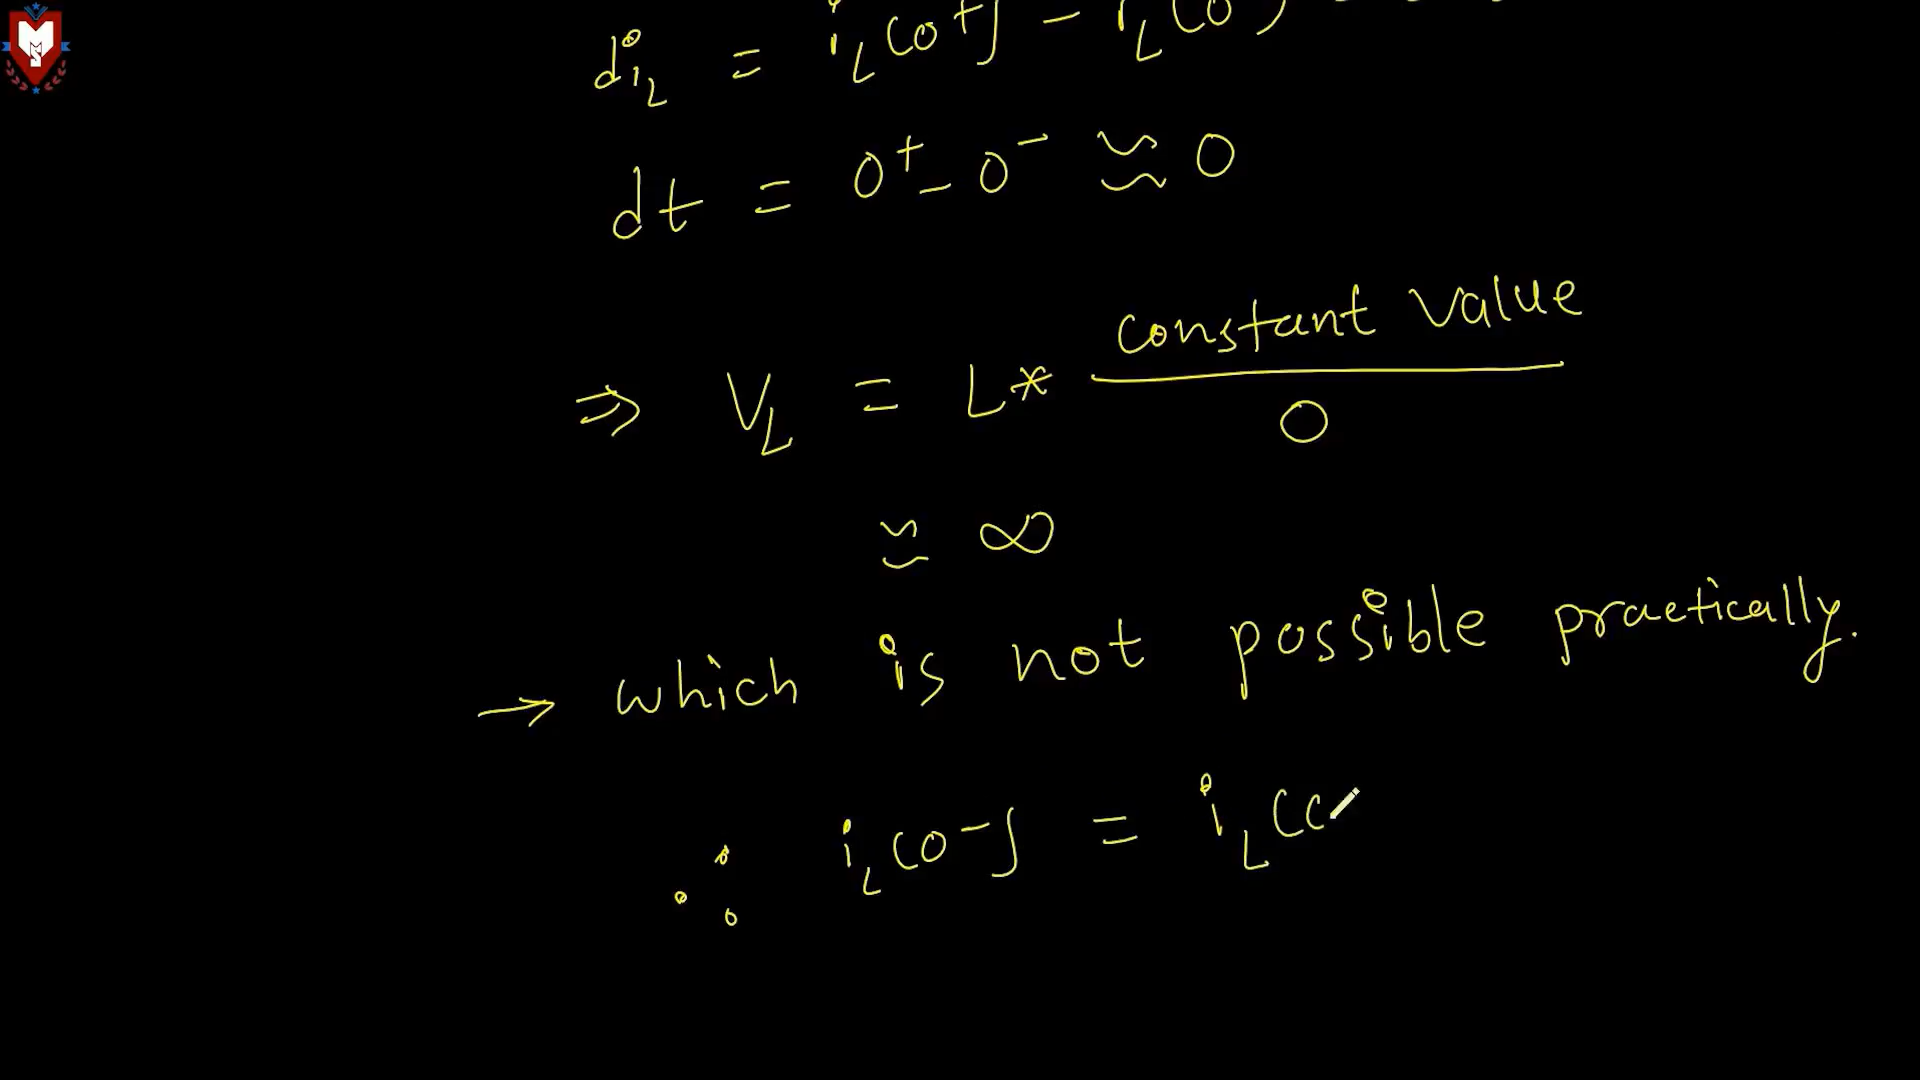 di_L = i_L(0⁺) − i_L(0
dt = 0⁺ − 0⁻ ≈ 0
⇒ V_L = L* constant value / 0
≈ ∞
→ which is not possible practically.
∴ i_L(0⁻) = i_L(0